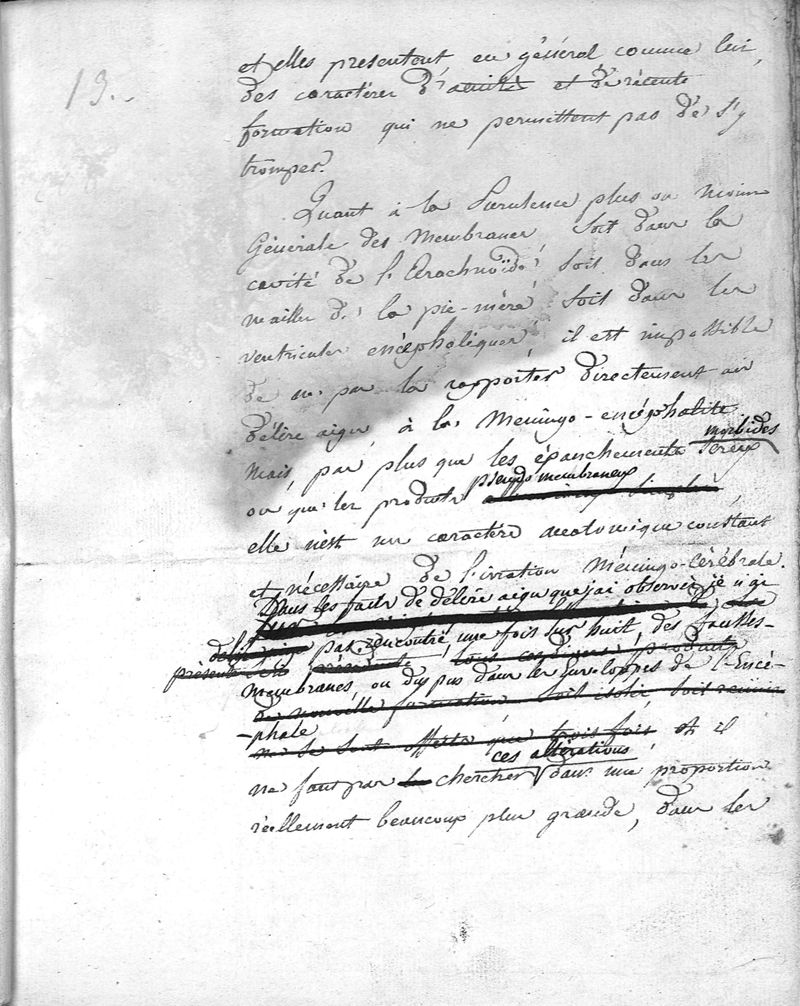 13.
et elles présentent, en général comme lui,
des caractères d'acuité et de récente
formation qui ne permettent pas de s'y
tromper.
Quant à la Purulence plus ou moins
Générale des Membranes, soit dans la
cavité de l'Arachnoïde, soit dans les
mailles de la pie-mère, soit dans les
ventricules encéphaliques, il est impossible
de ne pas la rapporter directement au
délire aigu, à la Meningo-encéphalite
morbides
mais, pas plus que les épanchements séreux
pseudo membraneux
ou que les produits
elle n'est un caractère anatomique constant
et nécessaire de l'irritation Méningo-Cérébrale.
Dans les faits de délire aigu que j'ai observés, je n'ai
pas rencontré une fois sur huit, des fausses-
présenté
membranes, ou du pus dans les Enveloppes de l'Encé-
de nouvelle formation, soit isolés, soit réunis
-phale
ne se sont offerts que trois fois et il
ces altérations
ne faut pas la chercher dans une proportion
réellement beaucoup plus grande, dans les